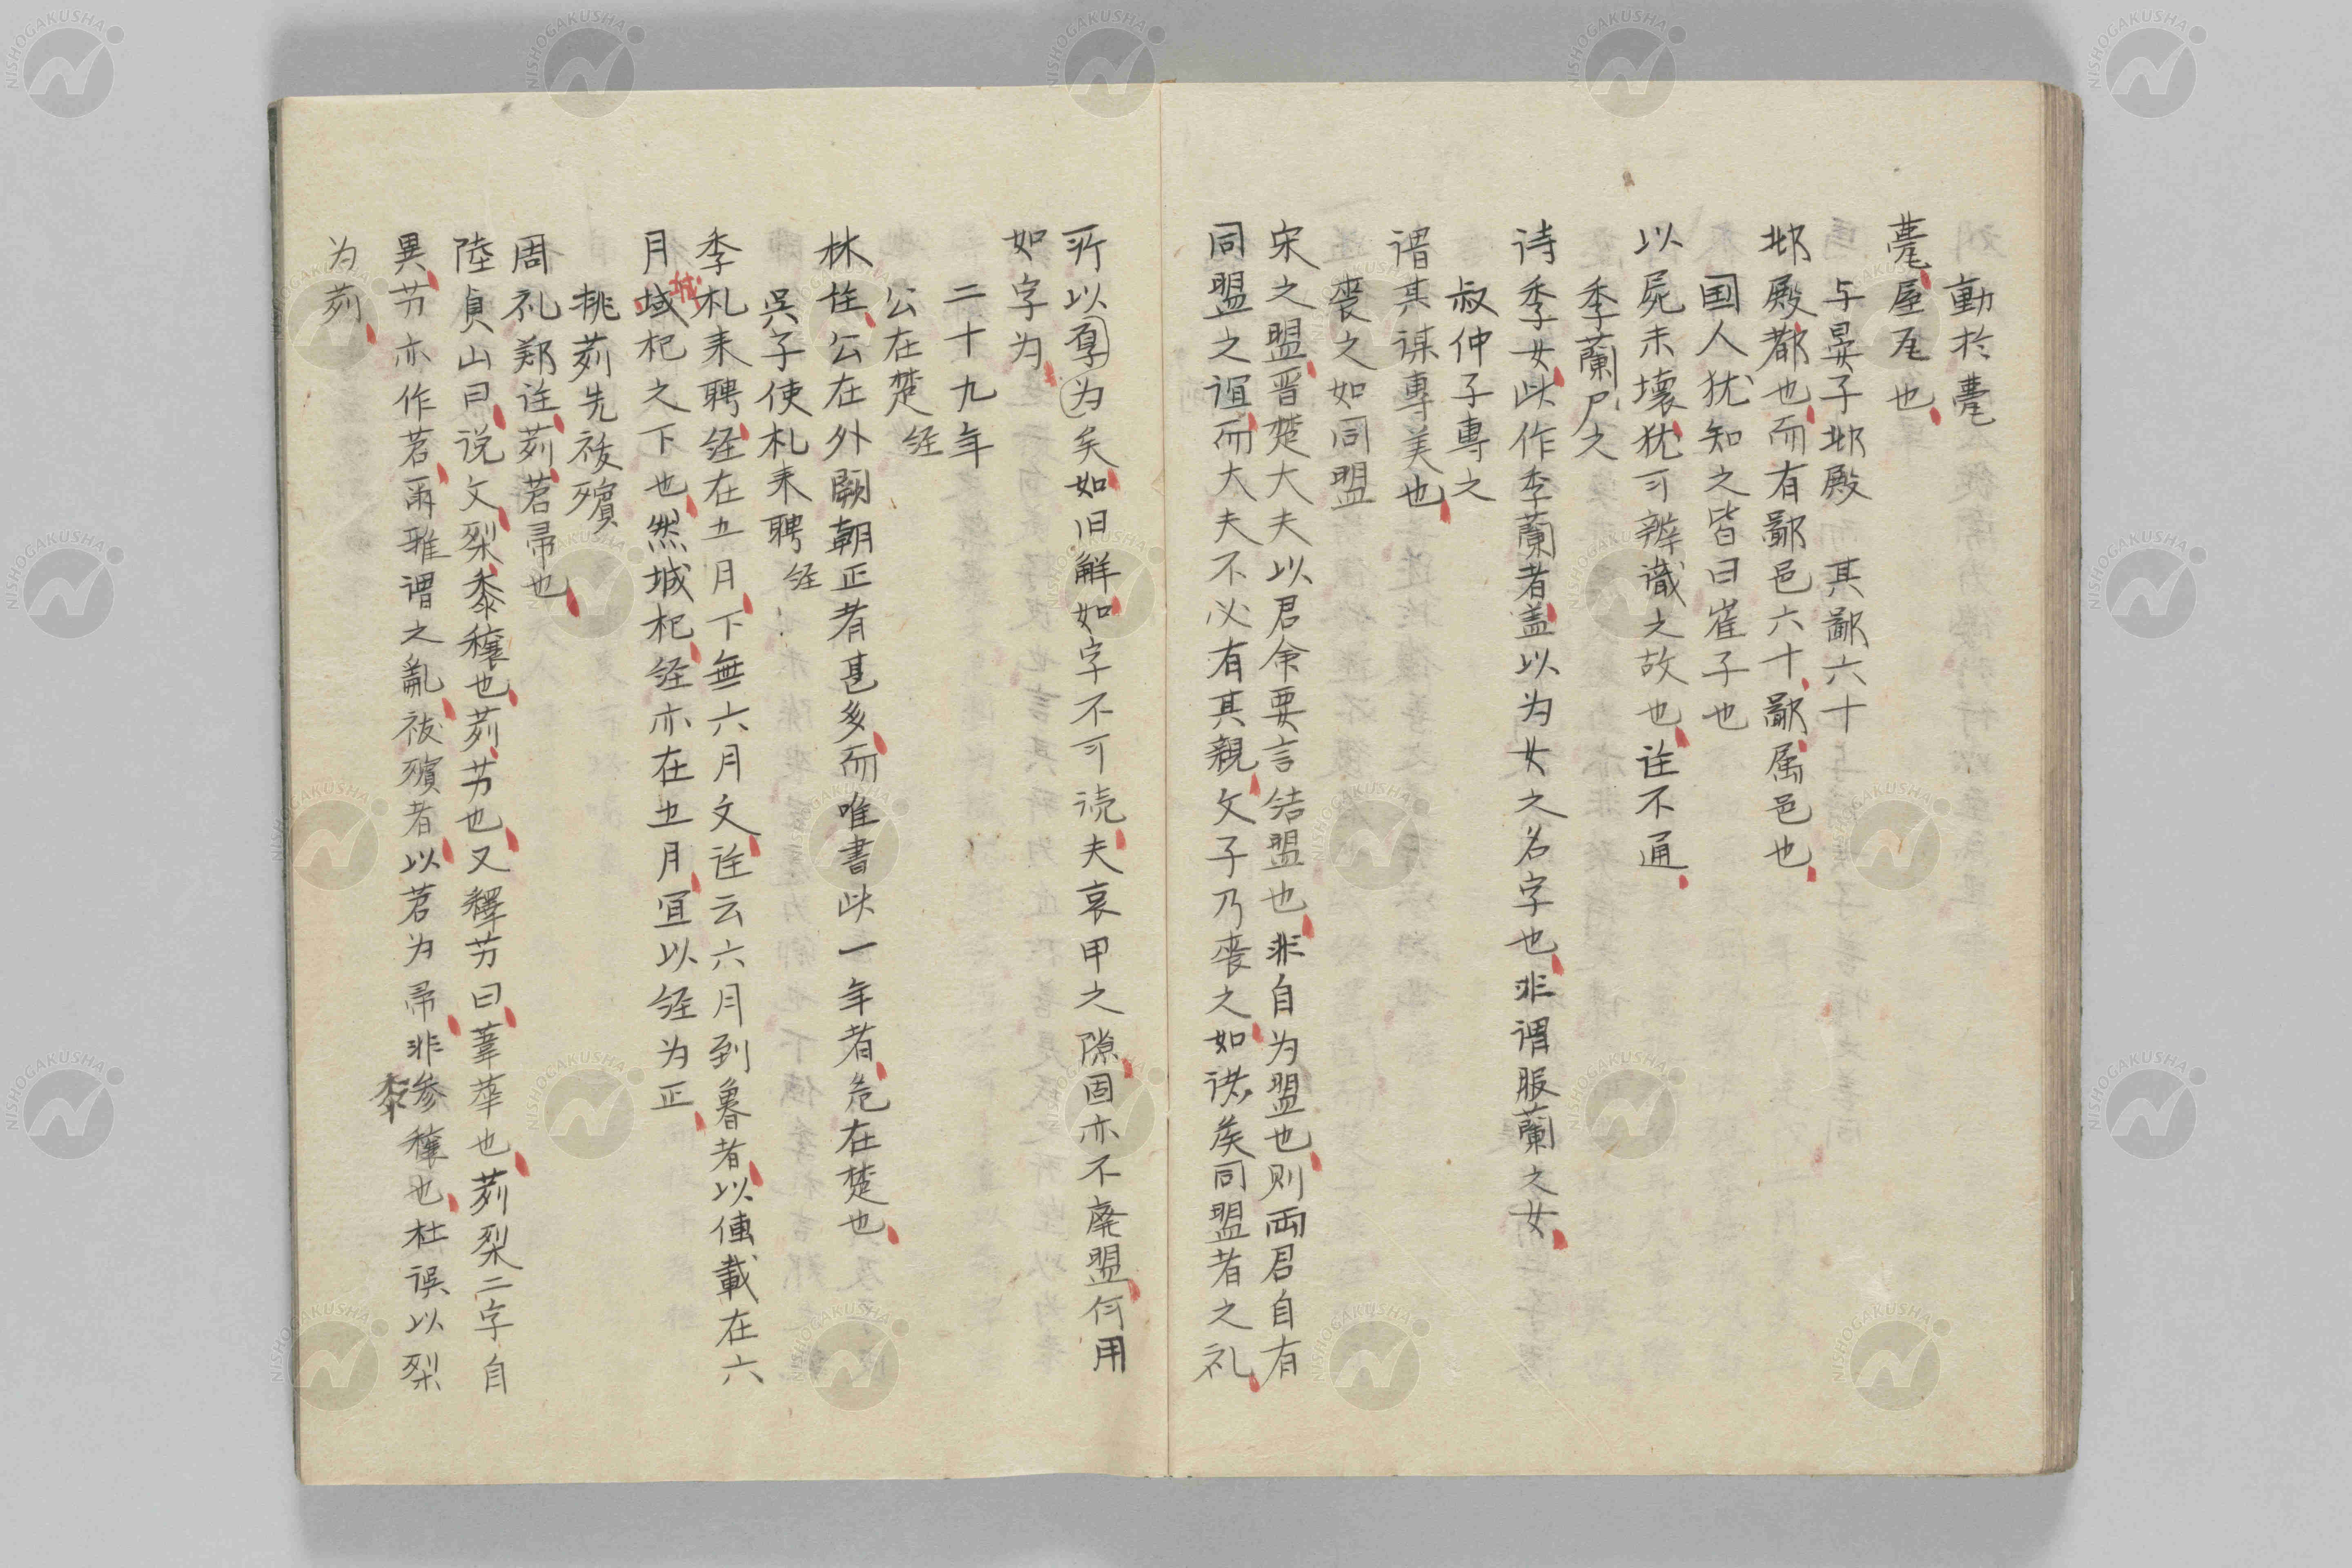 動於甍
甍屋瓦也
与晏子邶殿 其鄙六十
邶殿都也而有鄙邑六十鄙属邑也
国人犹知之皆曰崔子也
以屍未壊犹可辨識之故也注不通
季蘭尸之
诗季女此作季蘭者盖以为女之名字也非谓服蘭之女
叔仲子專之
谓其谋專美也
喪之如同盟
宋之盟晋楚大夫以君命要言结盟也非自为盟也则両君自有
同盟之谊而大夫不必有其親文子乃喪之如诸矦同盟者之礼
所以为矣如旧解如字不可读夫衷甲之隙固亦不廃盟何用
如字为
二十九年
公在楚 经
林注公在外闕朝正者甚多而唯書此一年者危在楚也
呉子使札来聘 经
季札来聘经在五月下無六月文注云六月到魯者以傳載在六
月城杞之下也然城杞经亦在五月宜以经为正
城
桃茢先祓殯
周礼郑注茢苕帚也
陸貞山曰说文梨黍穰也茢芀也又釋芀曰葦華也茢梨二字自
異芀亦作苕爾雅谓之薍祓殯者以苕为帚非黍穰也杜误以梨
黍
为茢
NISHOGAKUSHA